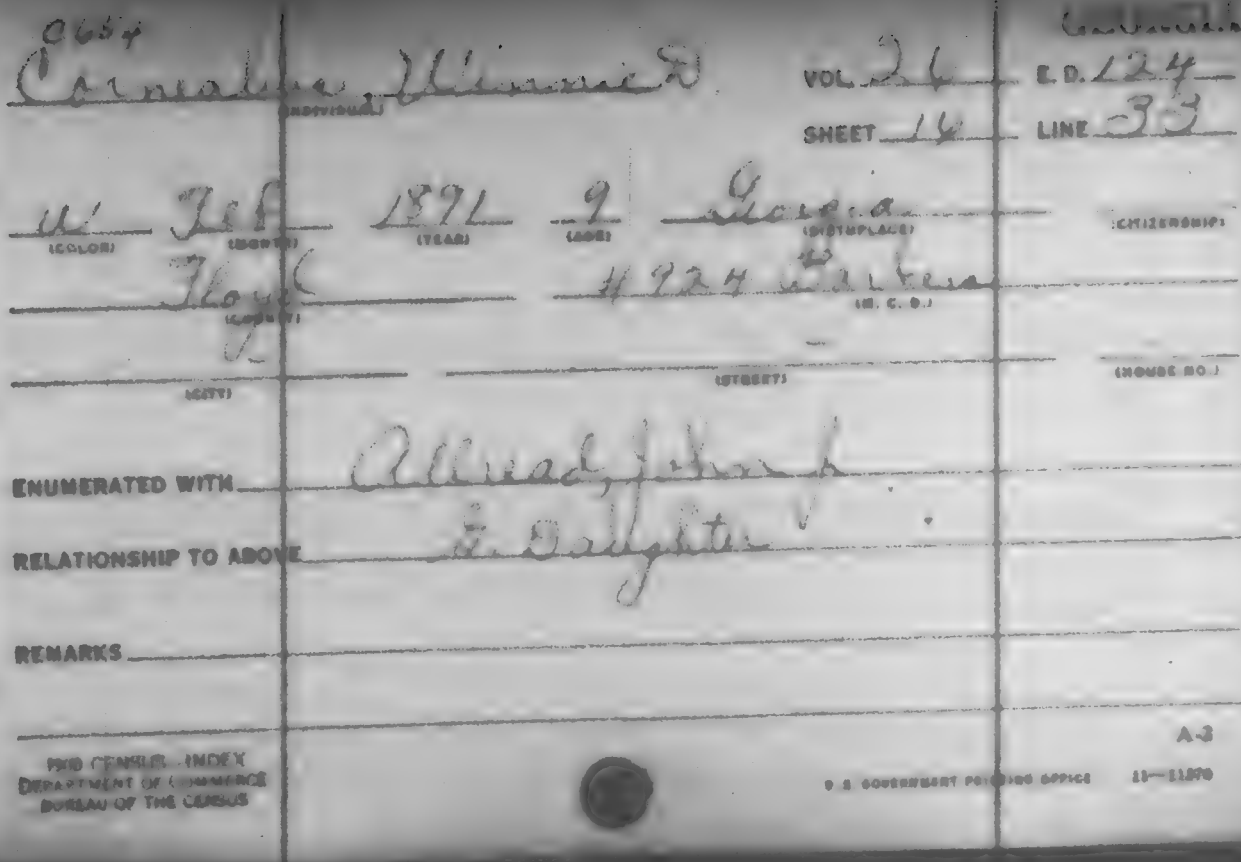 C654
Cornealius, Winnie D
(INDIVIDUAL)
VOL. 26 E.D. 124
SHEET 16 LINE 33
W Feb 1891 9 Georgia
(COLOR) (MONTH) (YEAR) (AGE) (BIRTHPLACE) (CITIZENSHIP)
Floyd # 924
(COUNTY) (M. C. D.)
(CITY) (STREET) (HOUSE NO.)
ENUMERATED WITH Allread, John J
RELATIONSHIP TO ABOVE G. Daughter
REMARKS
A-3
1900 CENSUS—INDEX
DEPARTMENT OF COMMERCE
BUREAU OF THE CENSUS
U S GOVERNMENT PRINTING OFFICE 11—11370